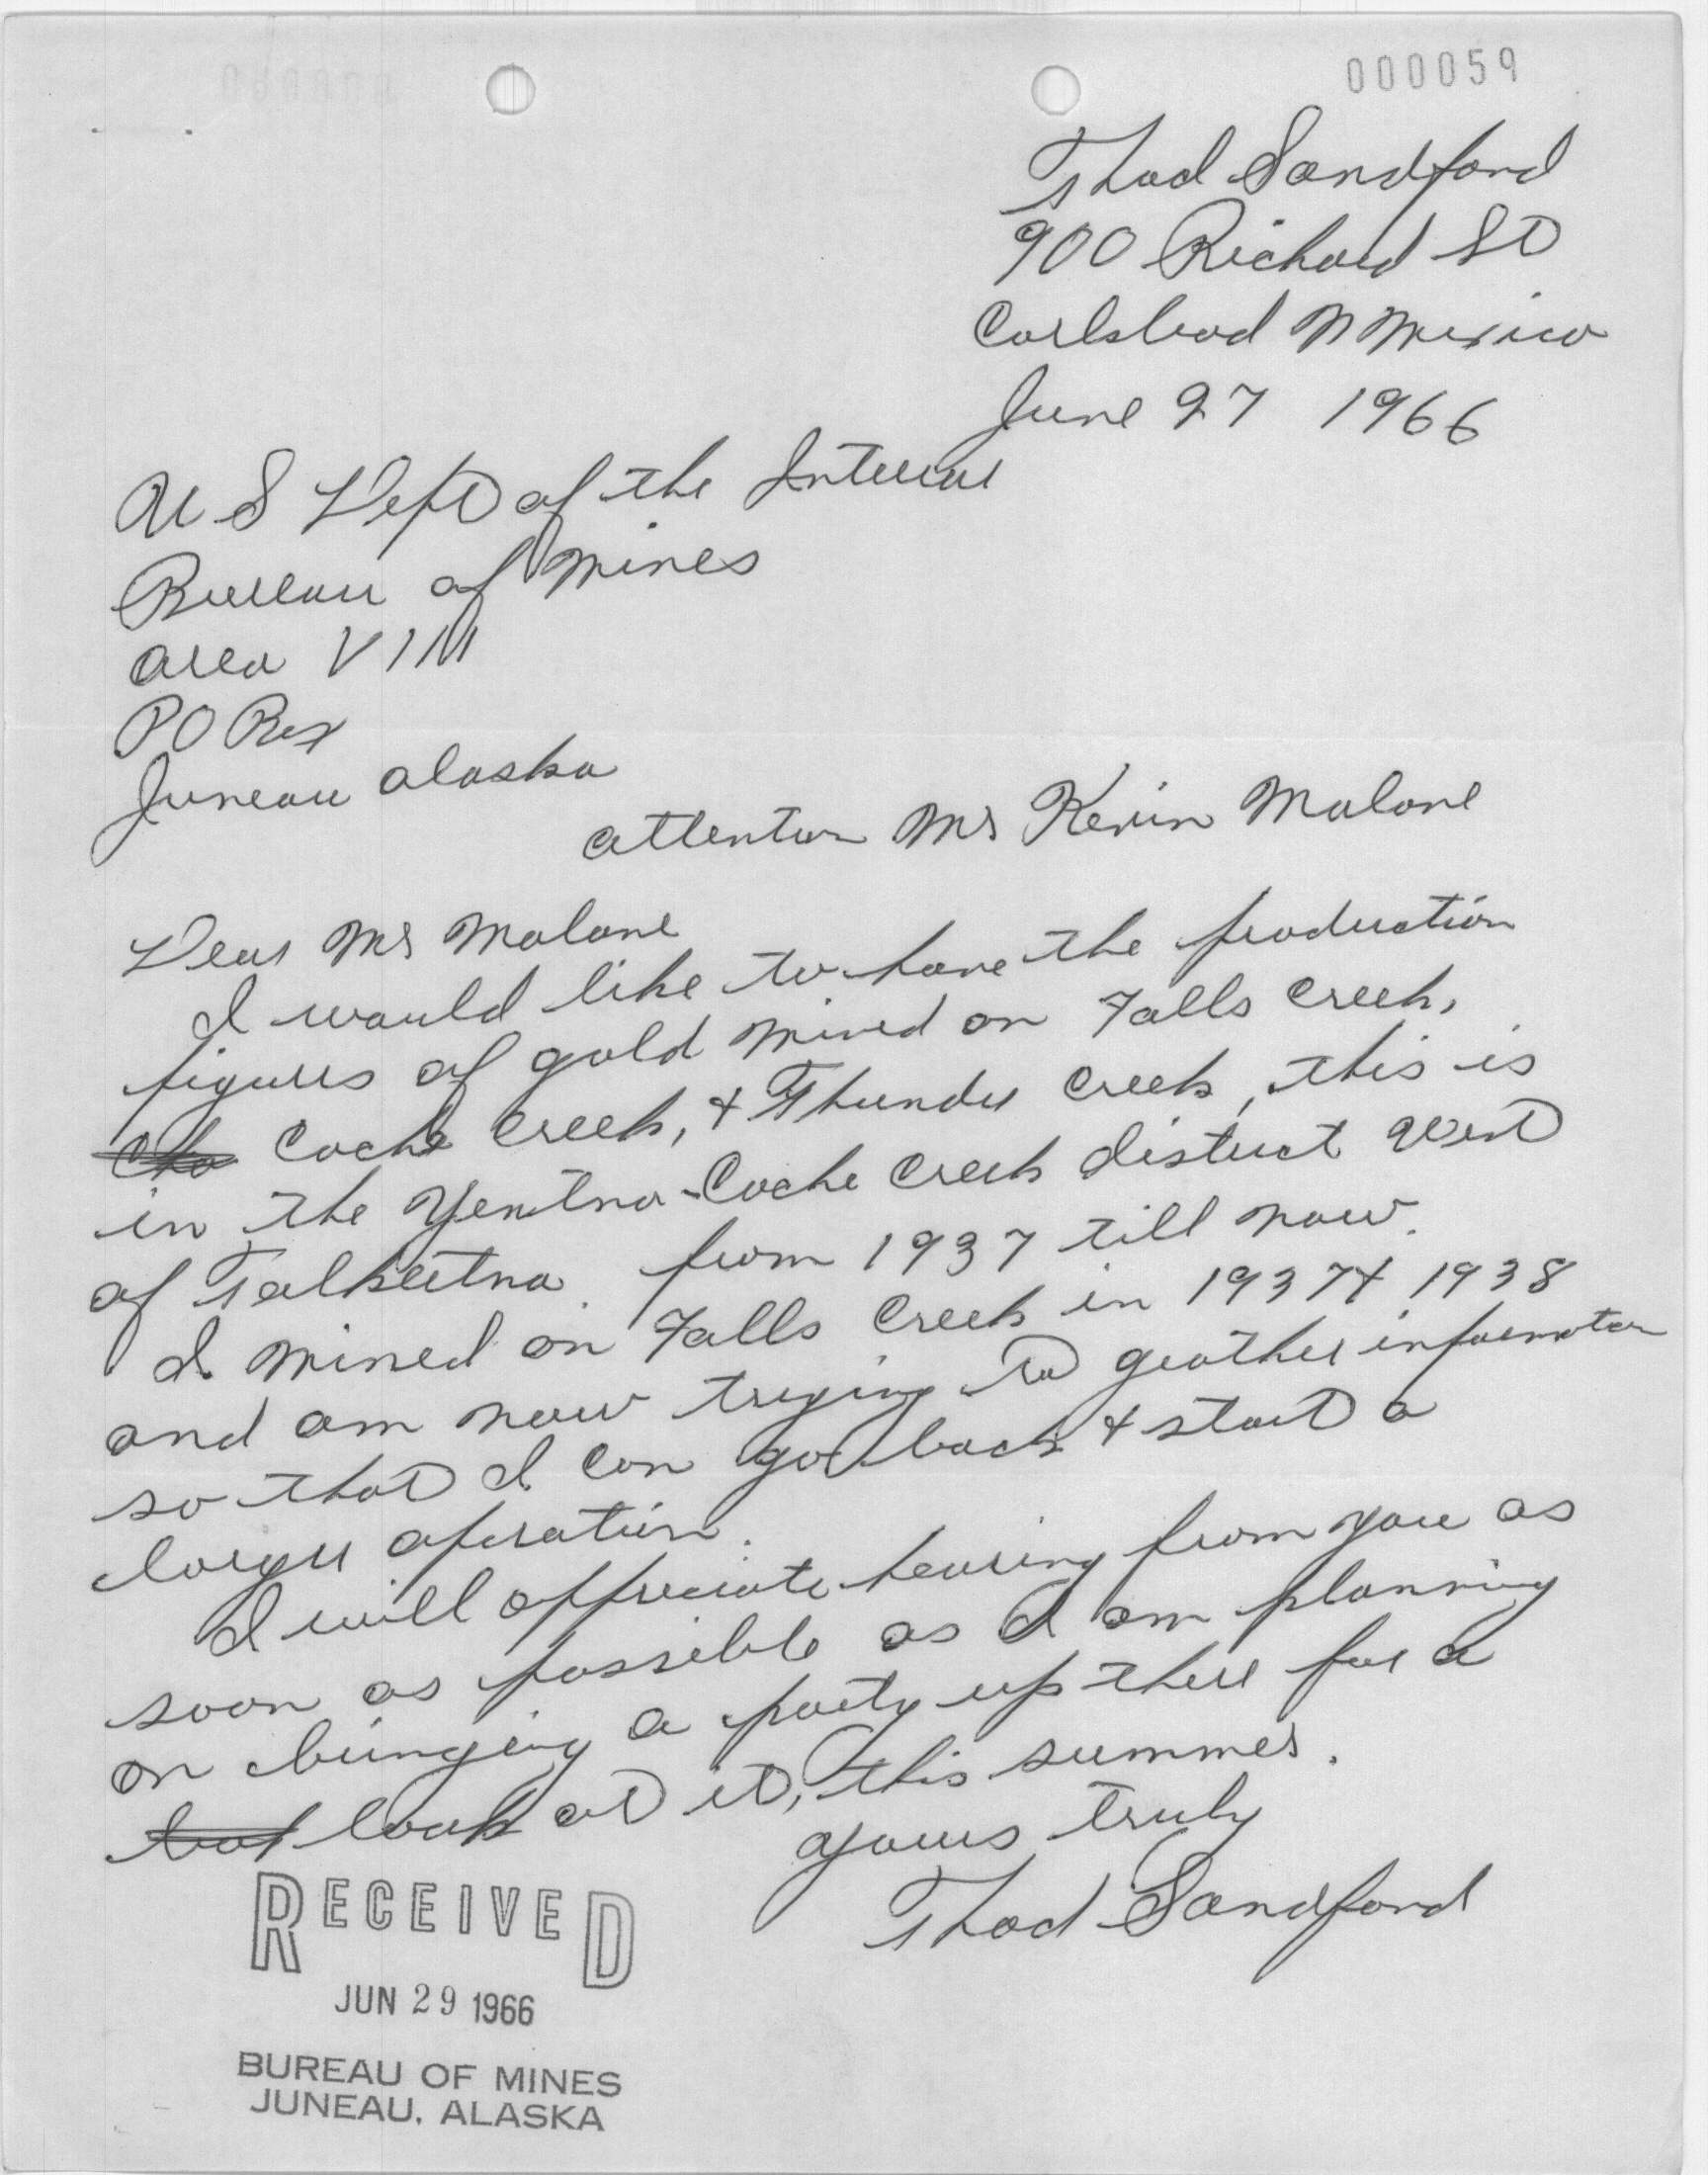 000059
Thad Sandford
900 Richard St
Carlsbad N Mexico
June 27 1966
U S Dept of the Interior
Bureau of Mines
area VIII
PO Box
Juneau alaska
attention Mr Kevin Malone
Dear Mr Malone
I would like to have the production
figures of gold mined on Falls Creek,
Cache Creek, & Thunder Creek, this is
in the Yentna-Cache Creek district West
of Talkeetna. from 1937 till now.
I mined on Falls Creek in 1937 & 1938
and am now trying to geather information
so that I can go back & start a
larger operation.
I will appreciate hearing from you as
soon as possible as I am planning
on bringing a party up there for a
look at it, this summer.
yours truly
Thad Sandford
RECEIVED
JUN 29 1966
BUREAU OF MINES
JUNEAU, ALASKA